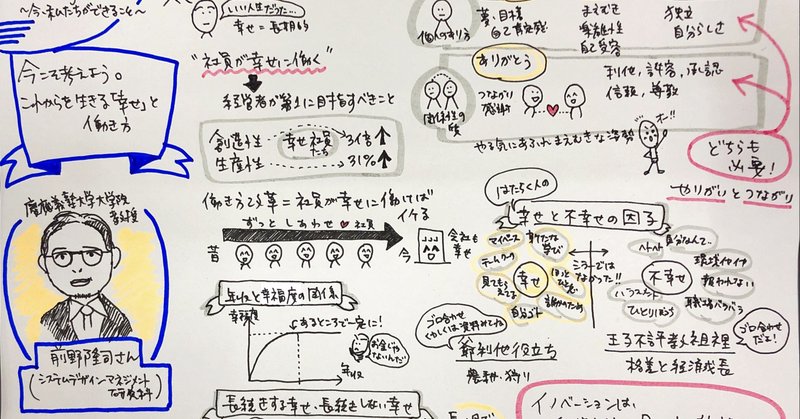 〜今・私たちができること〜
今こそ考えよう。
これからを生きる「幸せ」と
働き方
慶應義塾大学大学院
教授
前野隆司さん
(システムデザインマネジメント
研究科)
いい人生だった…
幸せ=長期的
"社員が幸せに働く"
経営者が第1に目指すべきこと
創造性
幸せ社員
たち
3倍
生産性
31%
働き方改革=社員が幸せに働けば
イケる
ずっと しあわせ 社員
昔
今
会社も
幸せ
年収と幸福度の関係
幸福度
あるところで一定に!
お金じゃ
ないんだ
年収
長続きする幸せ・長続きしない幸せ
個人のあり方
夢・目標
自己肯定感
まえむき
楽観性
自己受容
独立
自分らしさ
ありがとう
関係性の
質
つながり
感謝
利他,許容,承認
信頼,尊敬
やる気にあふれまえむきな姿勢
オー!!
どちらも
必要!
やりがいとつながり
はたらく人の
幸せと不幸せの因子
マイペース
新たな
学び
チームワーク
ほっと
ひと息
見てもら
えてる
幸せ
誰かのため
自分ゴト
ミラーでは
なかった!!
ヘトヘト
自分なんて…
環境イヤイヤ
不幸せ
報われない
ハラスメント
職場バラバラ
ひとりぼっち
ゴロ合わせ
くわしくは資料みてね
ゴロ合わせ
だよ!
格差と経済成長
イノベーションは、